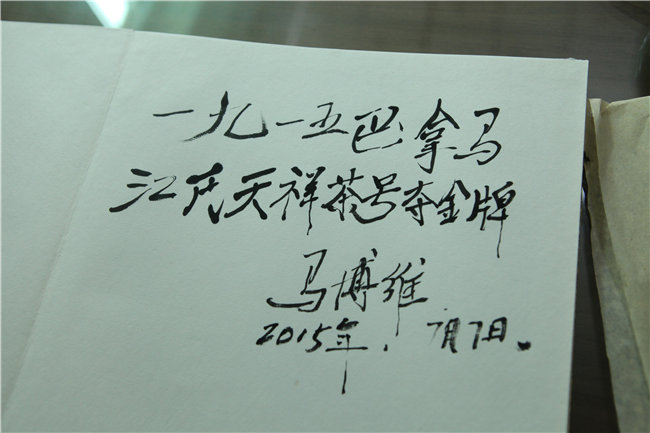 一九一五巴拿马
江裕天祥茶号夺金牌
马博维
2015年.7月7日。